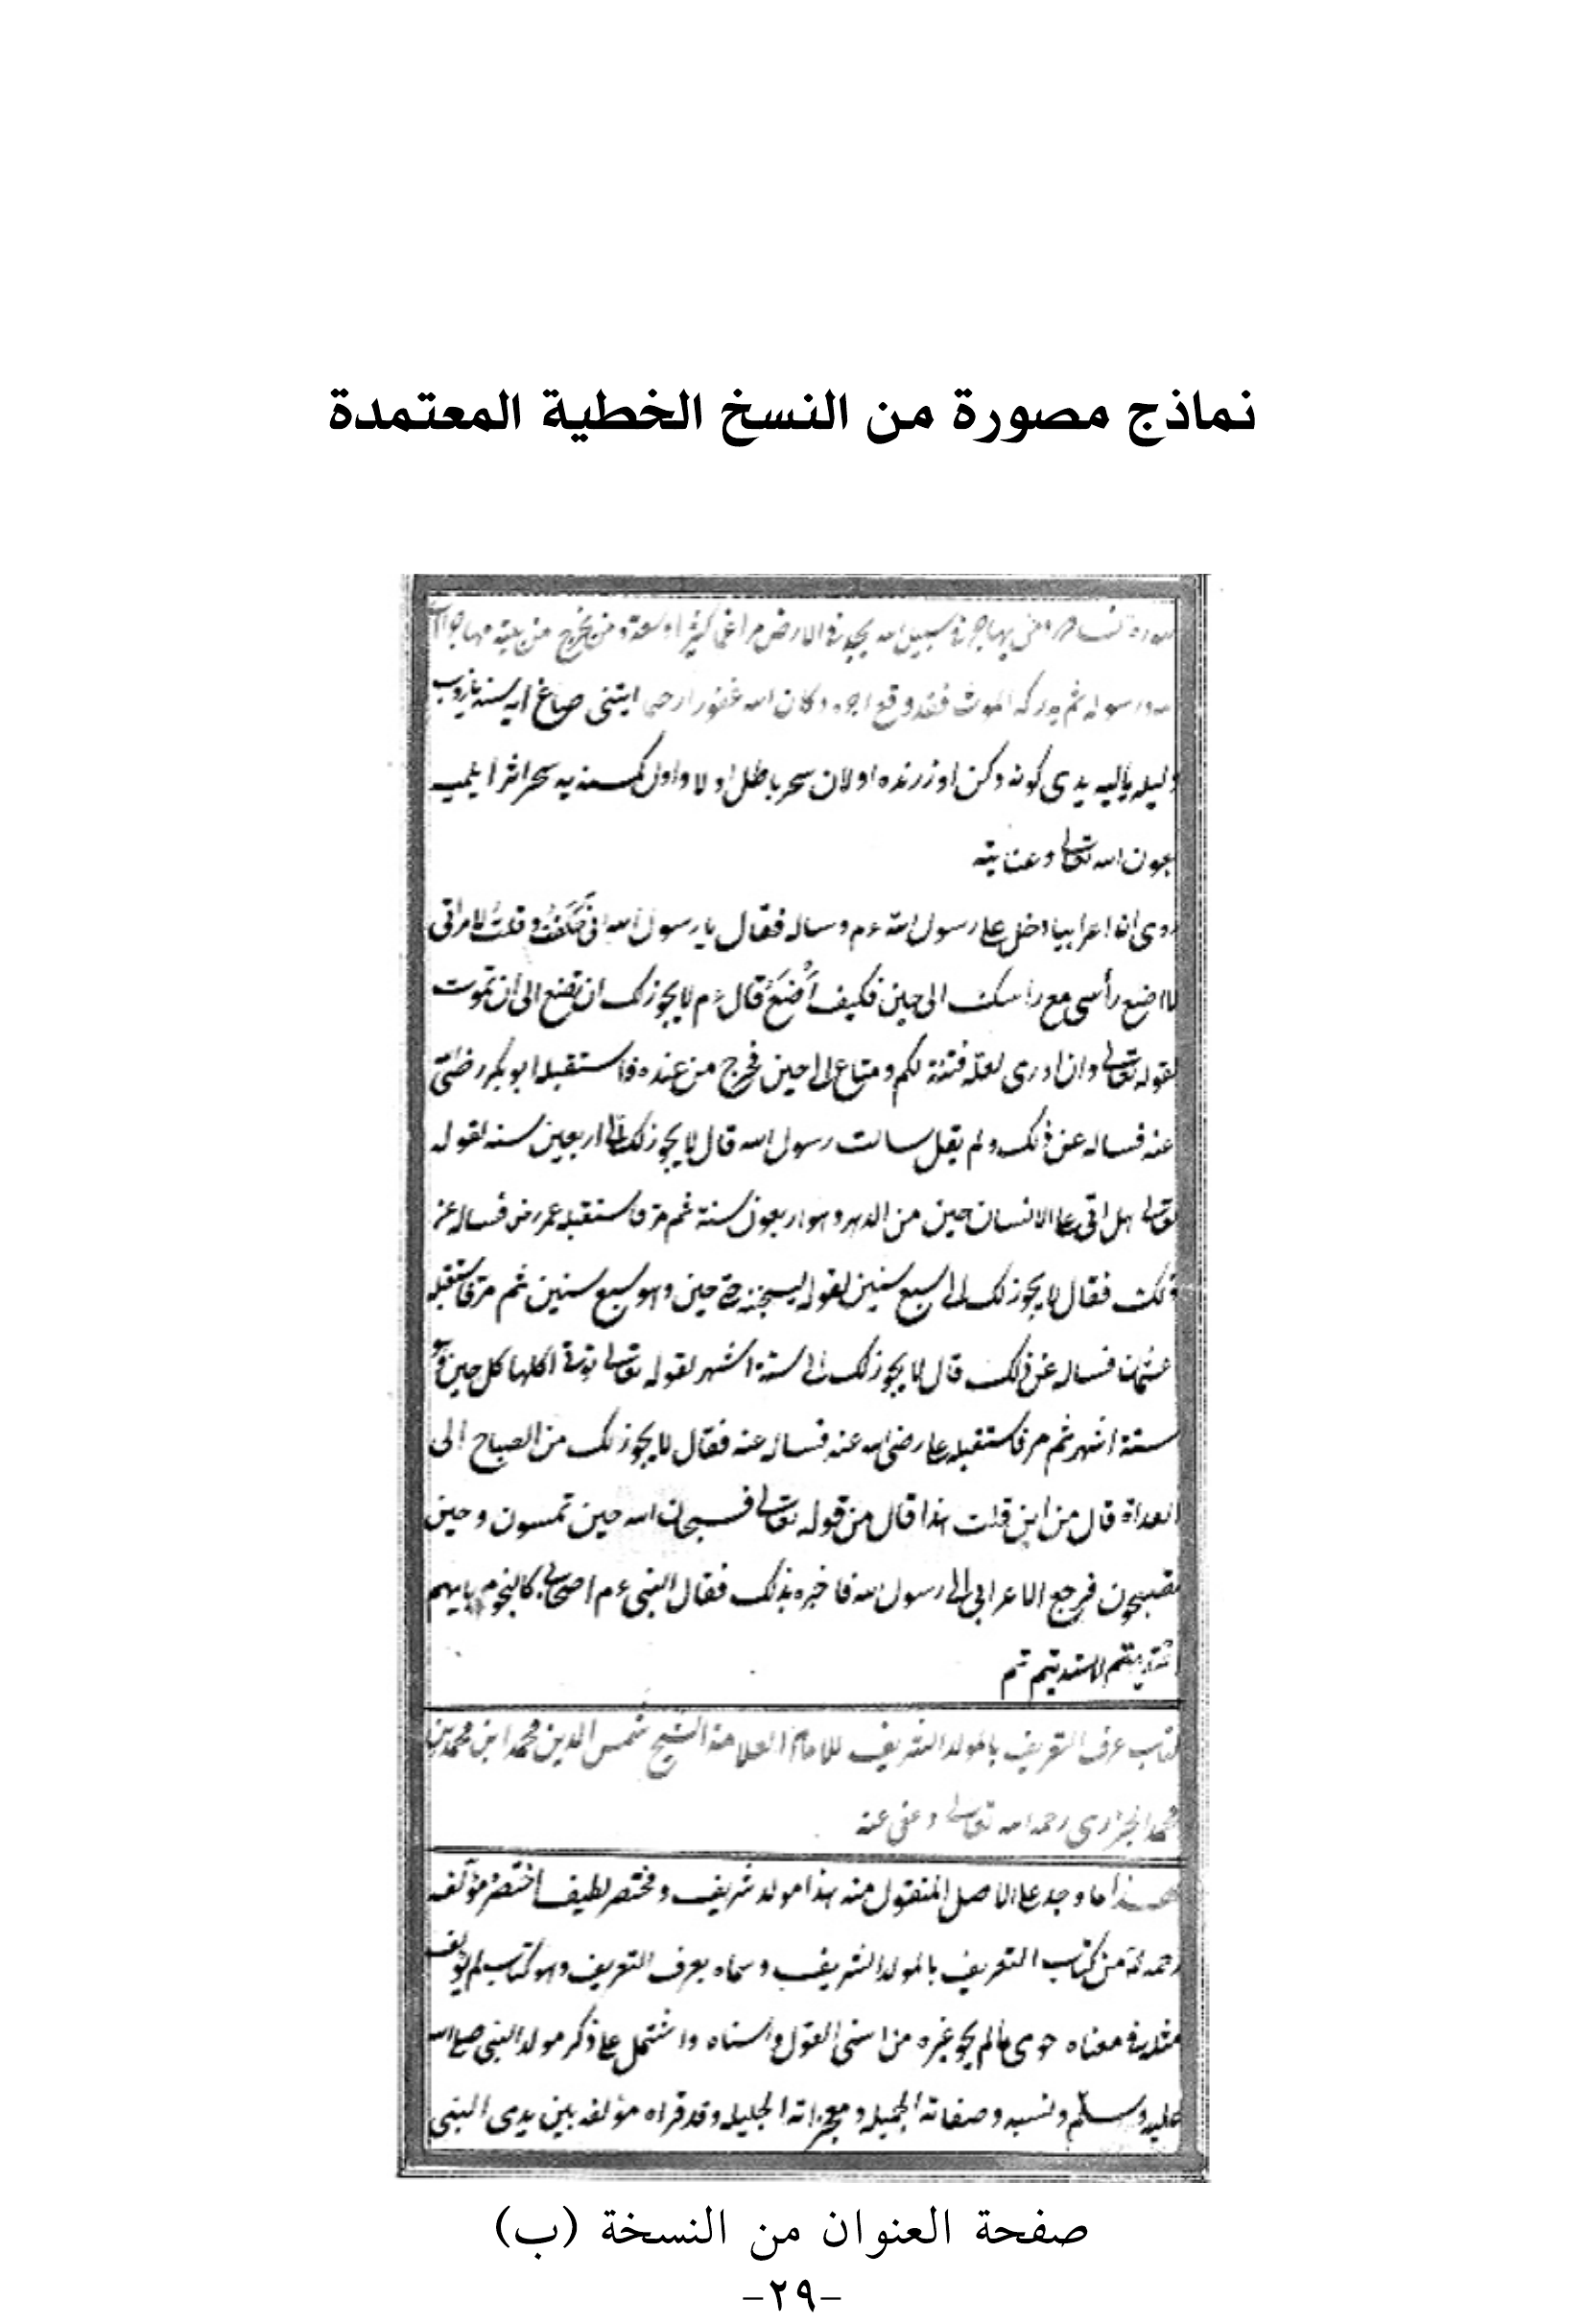 نماذج مصورة من النسخ الخطية المعتمدة
ومن يهاجر في سبيل الله يجد في الارض مراغما كثيرا وسعة ومن يخرج من بيته مهاجرا الى
الله ورسوله ثم يدركه الموت فقد وقع اجره وكان الله غفورا رحيما
سحر باطل اولا واول كمسنه يه سحر اثر ايلميه
بعون الله تعالى وعنايته
روى ان اعرابيا دخل على رسول الله ءم وساله فقال يا رسول الله انى حَلَفْتُ وقلتُ لامراتى
لا اضع رأسى مع راسك الى حين فكيف أَصْنَعُ قال ءم لا يجوز لك ان تضع الى ان تموت
لقوله تعالى وان ادرى لعله فتنة لكم ومتاع الى حين فخرج من عنده فاستقبله ابو بكر رضى الله
عنه فساله عن ذلك ولم يقل سالت رسول الله قال لا يجوز لك الى اربعين سنه لقوله
تعالى هل اتى على الانسان حين من الدهر وهو اربعون سنة ثم مر فاستقبله عمر رض فساله عن
ذلك فقال لا يجوز لك الى سبع سنين لقوله ليسجننه حتى حين وهو سبع سنين ثم مر فاستقبله
عثمان فساله عن ذلك قال لا يجوز لك الى ستة اشهر لقوله تعالى تؤتى اكلها كل حين وهو
ستة اشهر ثم مر فاستقبله على رضى الله عنه فساله عنه فقال لا يجوز لك من الصباح الى
الغداة قال من اين قلت هذا قال من قوله تعالى فسبحان الله حين تمسون وحين
تصبحون فرجع الاعرابى الى رسول الله فاخبره بذلك فقال النبى ءم اصحابى كالنجوم بايهم
اقتديتم اهتديتم تم
كتاب عرف التعريف بالمولد الشريف للامام العلامة الشيخ شمس الدين محمد ابن محمد بن
محمد الجزرى رحمه الله تعالى وعفى عنه
هذا ما وجد على الاصل المنقول منه هذا مولد شريف ومختصر لطيف اختصره مؤلفه
رحمه الله من كتاب التعريف بالمولد الشريف وسماه بعرف التعريف وهو كتاب لم يؤلف
مثله فى معناه حوى مالم يحو غيره من اسنى القول واسناه واشتمل على ذكر مولد النبى صلى الله
عليه وسلم ونسبه وصفاته الجميله ومعجزاته الجليله وقد قراه مؤلفه بين يدى النبى
صفحة العنوان من النسخة (ب)
-٢٩-